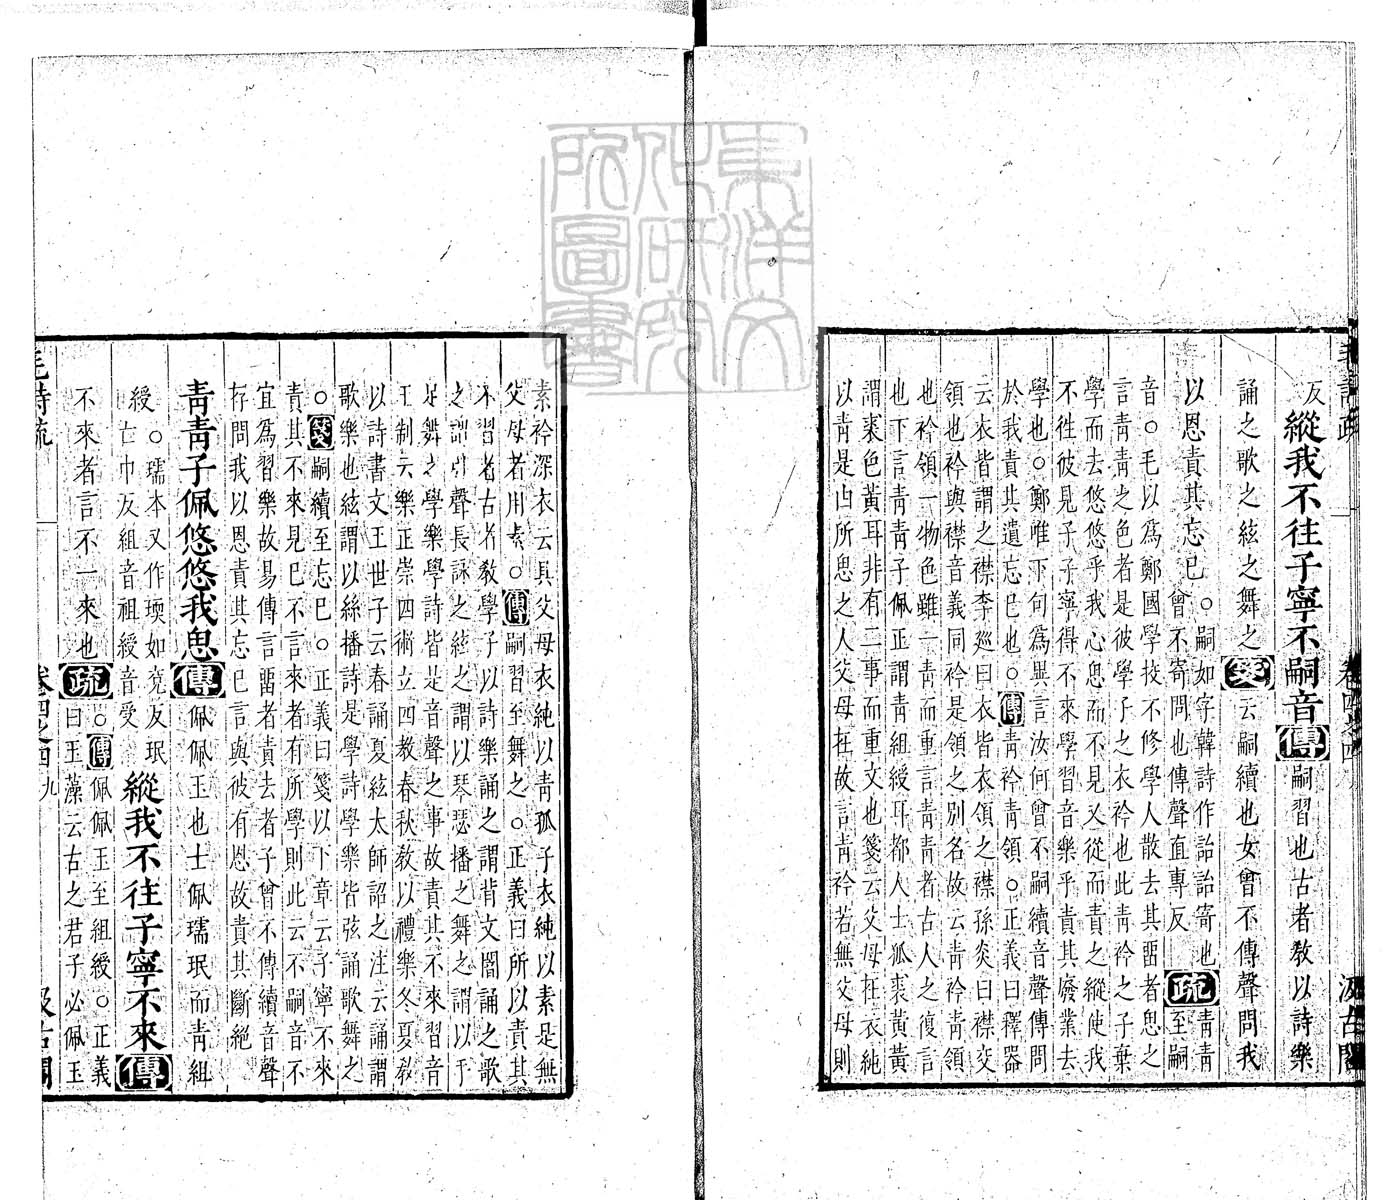 反縱我不往子寧不嗣音傳嗣習也古者教以詩樂
誦之歌之絃之舞之箋云嗣續也女曾不傳聲問我
以恩責其忘已○嗣如字韓詩作詒詒寄也
曾不寄問也傳聲直專反疏青青至嗣
音○毛以爲鄭國學校不修學人散去其畱者思之
言青青之色者是彼學子之衣衿也此青衿之子棄
學而去悠悠乎我心思而不見又從而責之縱使我
不往彼見子子寧得不來學習音樂乎責其廢業去
學也○鄭唯下句爲異言汝何曾不嗣續音聲傳問
於我責其遺忘已也○傳青衿青領○正義曰釋器
云衣皆謂之襟李廵曰衣皆衣領之襟孫炎曰襟交
領也衿與襟音義同衿是領之别名故云青衿青領
也衿領一物色雖一青而重言青青者古人之復言
也下言青青子佩正謂青組綬耳都人士狐裘黃黃
謂裘色黃耳非有二事而重文也箋云父母在衣純
以青是由所思之人父母在故言青衿若無父母則
素衿深衣云具父母衣純以青孤子衣純以素是無
父母者用素○傳嗣習至舞之○正義曰所以責其
不習者古者教學子以詩樂誦之謂背文闇誦之歌
之謂引聲長詠之絃之謂以琴瑟播之舞之謂以手
足舞之學樂學詩皆是音聲之事故責其不來習音
王制云樂正崇四術立四教春秋教以禮樂冬夏教
以詩書文王世子云春誦夏絃太師詔之注云誦謂
歌樂也絃謂以絲播詩是學詩學樂皆弦誦歌舞之
○箋嗣續至忘已○正義曰箋以下章云子寧不來
責其不來見已不言來者有所學則此云不嗣音不
宜爲習樂故易傳言畱者責去者子曾不傳續音聲
存問我以恩責其忘已言與彼有恩故責其斷絕
青青子佩悠悠我思傳佩佩玉也士佩瓀珉而青組
綬○瓀本又作瑌如兖反珉
亡巾反組音祖綬音受縱我不往子寧不來傳
不來者言不一來也疏○傳佩佩玉至組綬○正義
曰玉藻云古之君子必佩玉
毛詩疏 卷四之四 九 汲古閣